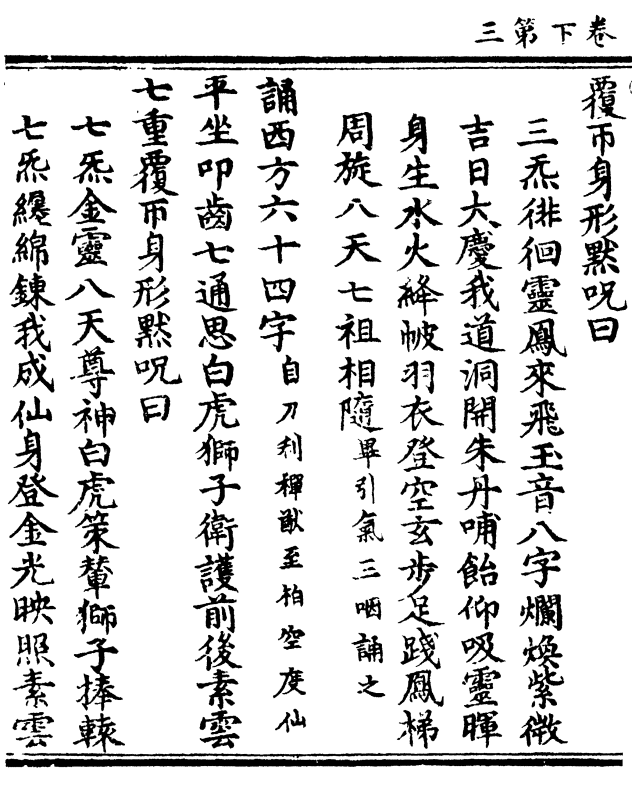 卷下第三
覆帀身形默呪曰
三炁徘徊靈鳳來飛玉音八字爛煥紫微
吉日大慶我道洞開朱丹哺飴仰吸靈暉
身生水火絳帔羽衣登空玄步足踐鳳梯
周旋八天七祖相隨畢引氣三咽誦之
誦西方六十四字自刀利禪猷至柏空度仙
平坐叩齒七通思白虎獅子衛護前後素雲
七重覆帀身形默呪曰
七炁金靈八天尊神白虎策輦獅子捧轅
七炁纏綿鍊我成仙身登金光映照素雲